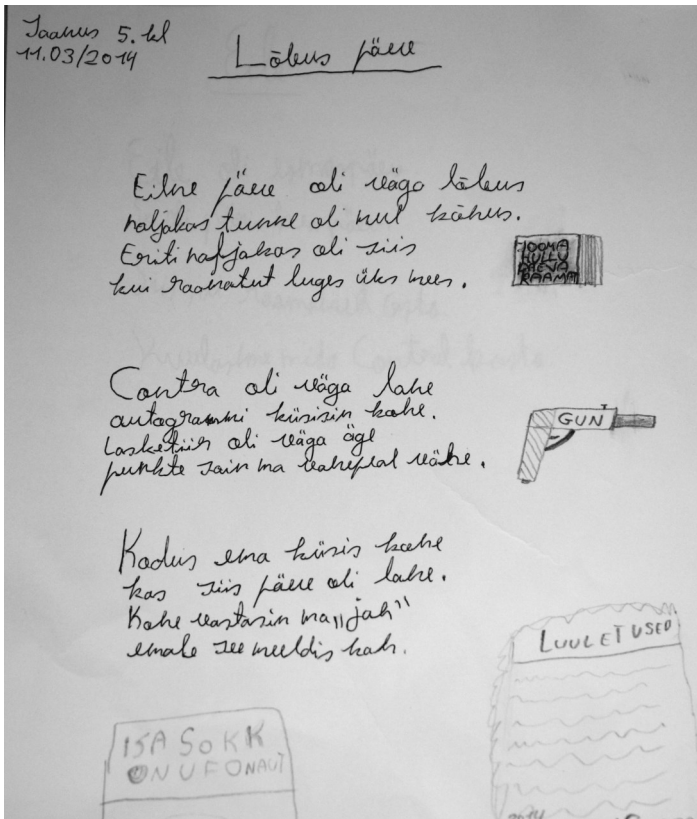 Jaanus 5. kl
11.03/2014
Lõbus päev
Eilne päev oli väga lõbus
naljakas tunne oli mul kõhus.
Eriti naljakas oli siis
kui raamatut luges üks mees.
HOOMA
HULLU
PÄEVA
RAAMAT
Contra oli väga lahe
autogrammi küsisin kahe.
Lasketiir oli väga äge
punkte sain ma vahepeal vähe.
GUN
Kodus ema küsis kohe
kas siis päev oli lahe.
Kohe vastasin ma "jah"
emale see meeldis kah.
LUULETUSED
ISA SOKK
ON UFONAUT